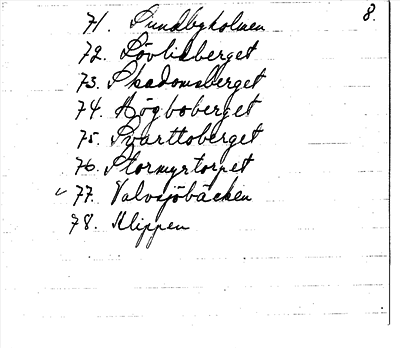 8.
71. Sundbyholmen
72. Lövlidberget
73. Skadomsberget
74. Högboberget
75. Svarttoberget
76. Stormyrtorpet
✓ 77. Valvsjöbäcken
78. Klippen